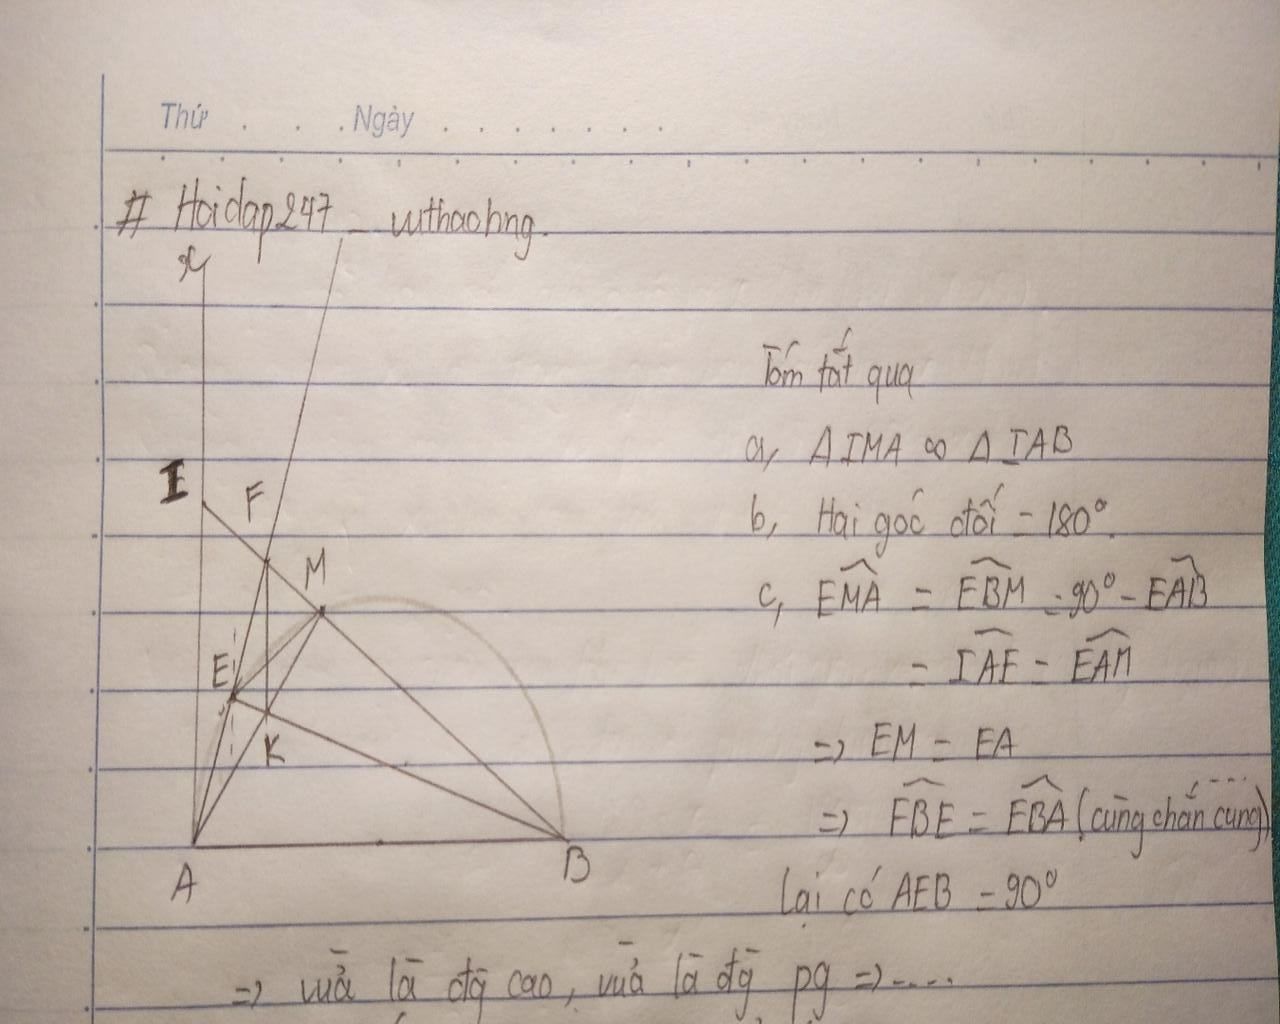 Thứ . . . Ngày . . . . . . . .
# Hoidap247 _ vuthaohng.
x
I
F
M
E
K
A
B
Tóm tắt qua
a, ΔIMA ∞ ΔIAB
b, Hai góc đối = 180°.
c, EMA = EBM = 90° - EAB
= IAE = EAM
=> EM = EA
=> FBE = EBA (cùng chắn cung)
lại có AEB = 90°
=> vừa là đg cao, vừa là đg pg => ....